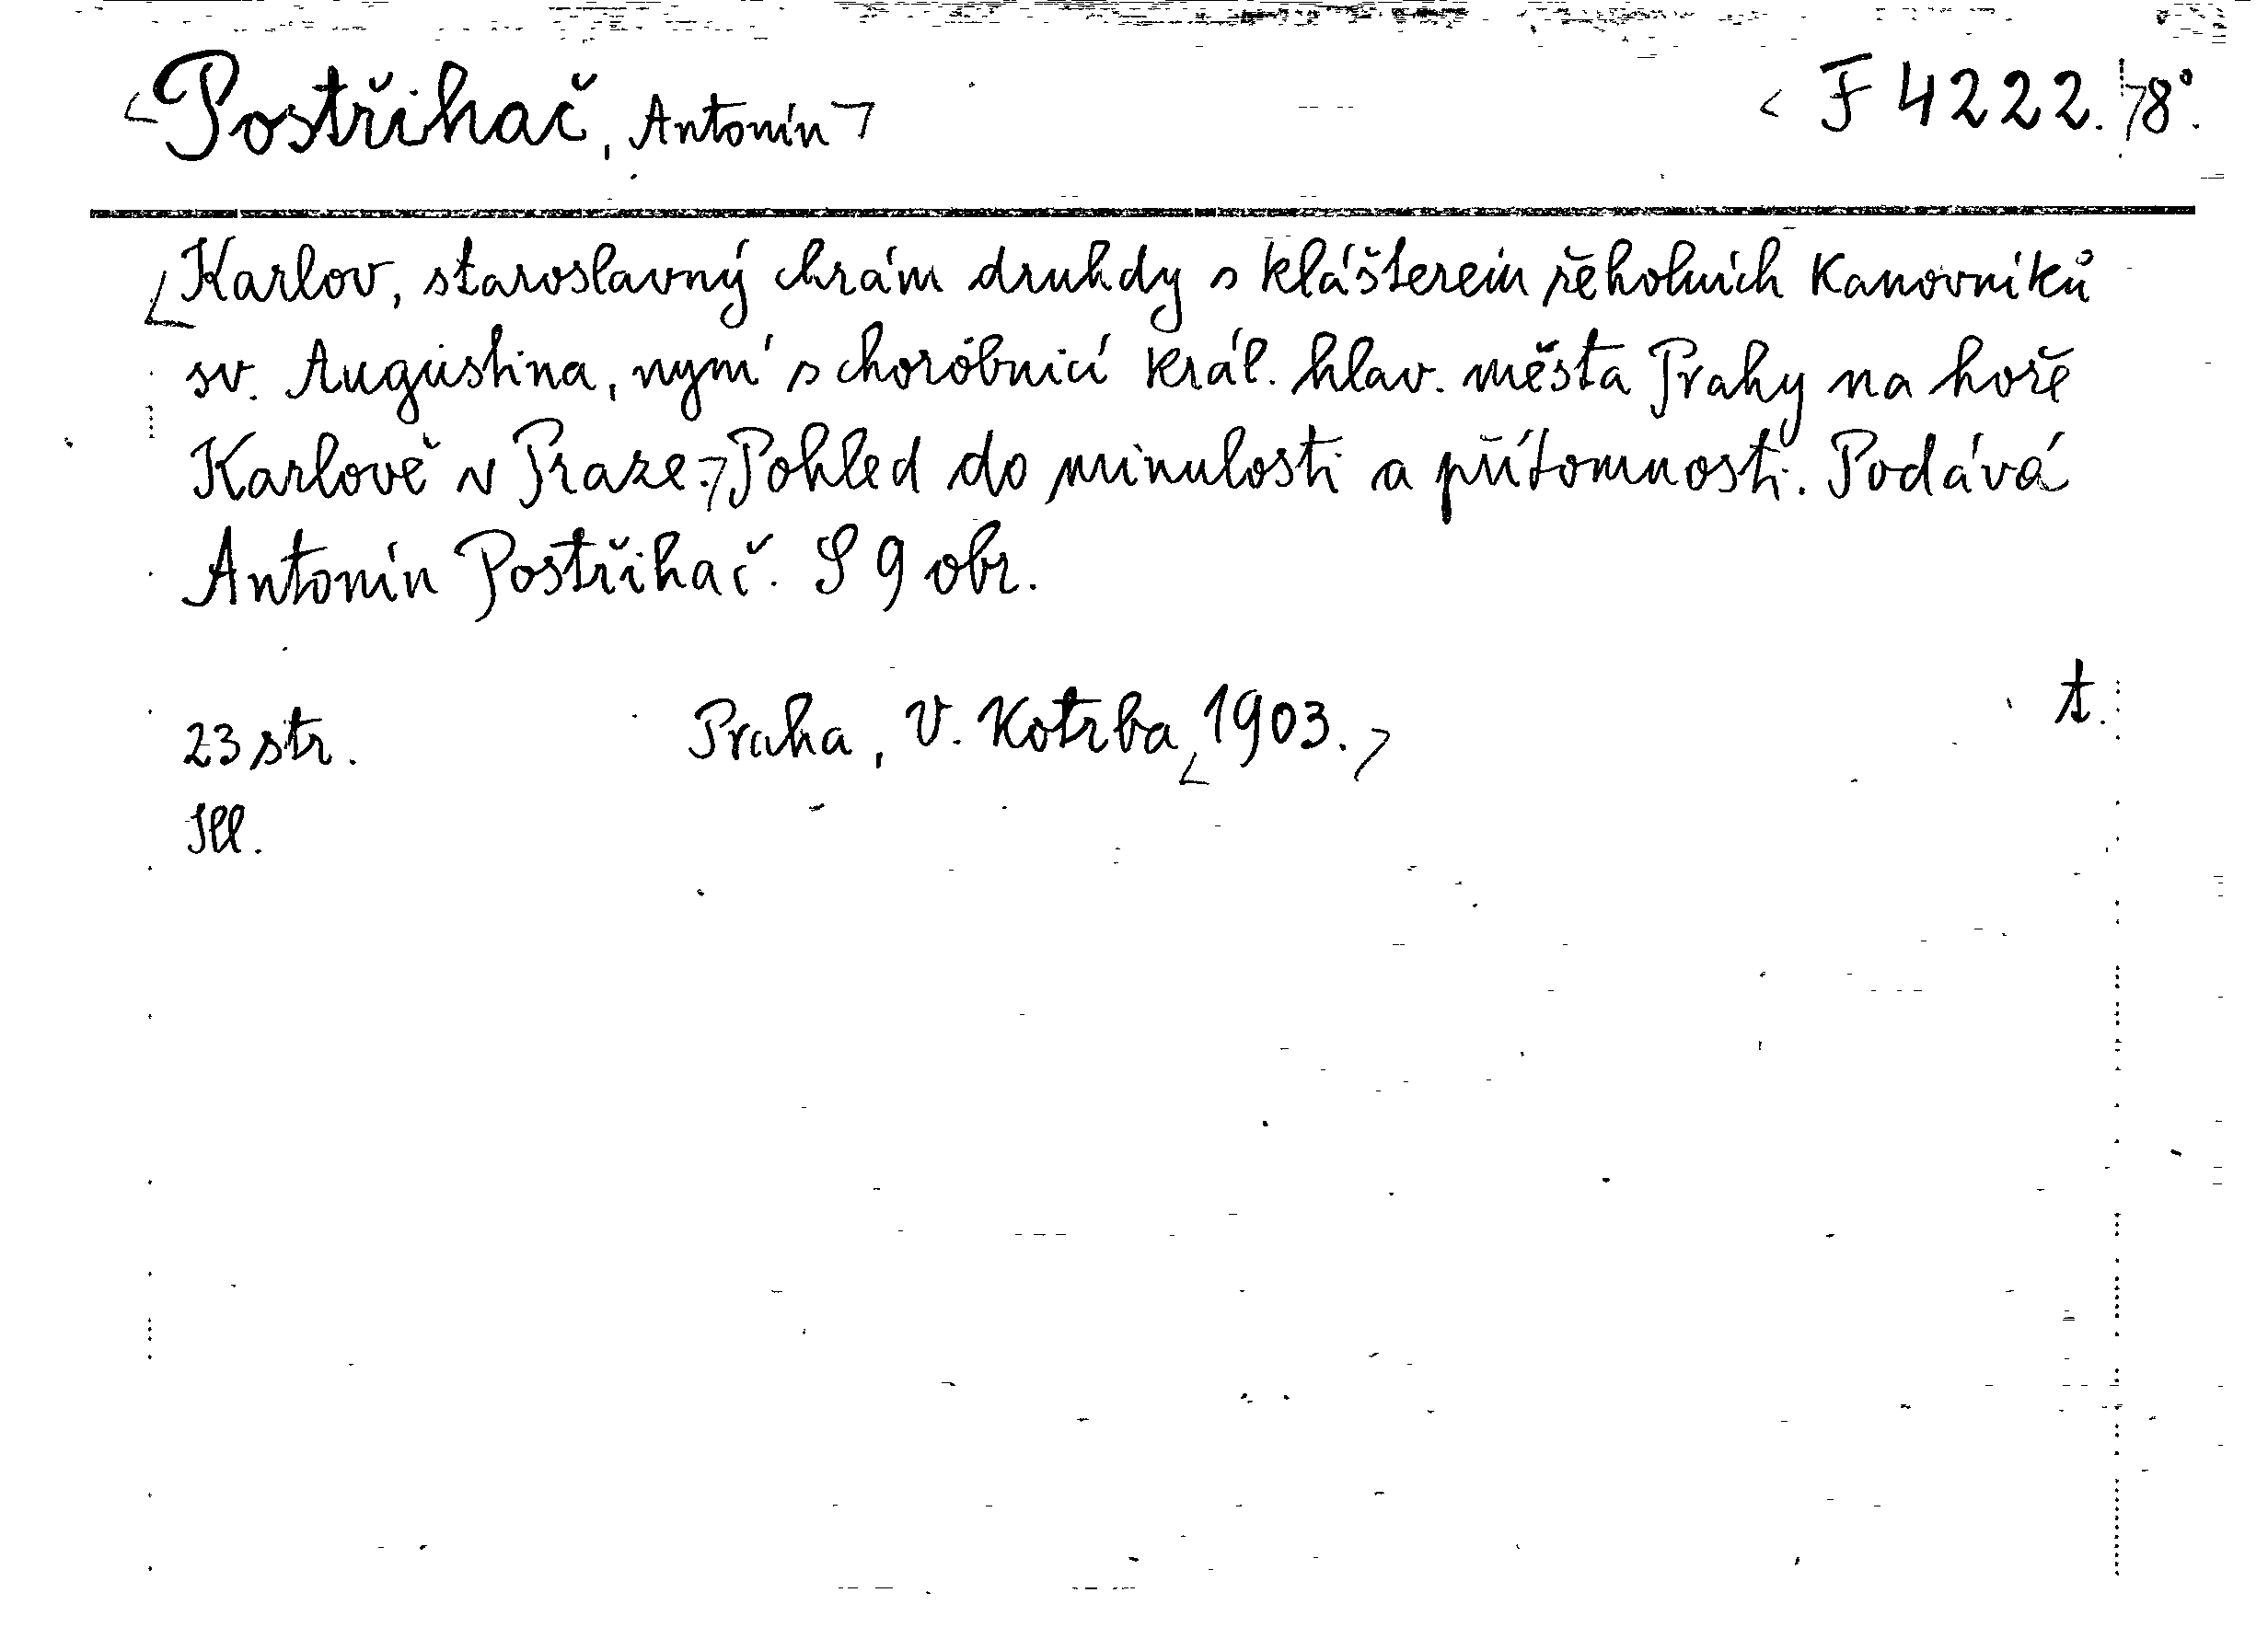 Postřihač, Antonín F 4222. 8°.
Karlov, staroslavný chrám druhdy s klášterem řeholních Kanovníků
sv. Augustina, nyní s choróbnicí král. hlav. města Prahy na hoře
Karlově v Praze. Pohled do minulosti a přítomnosti. Podává
Antonín Postřihač. S 9 obr.
23 str. Praha, V. Kotrba, 1903. t.
Ill.